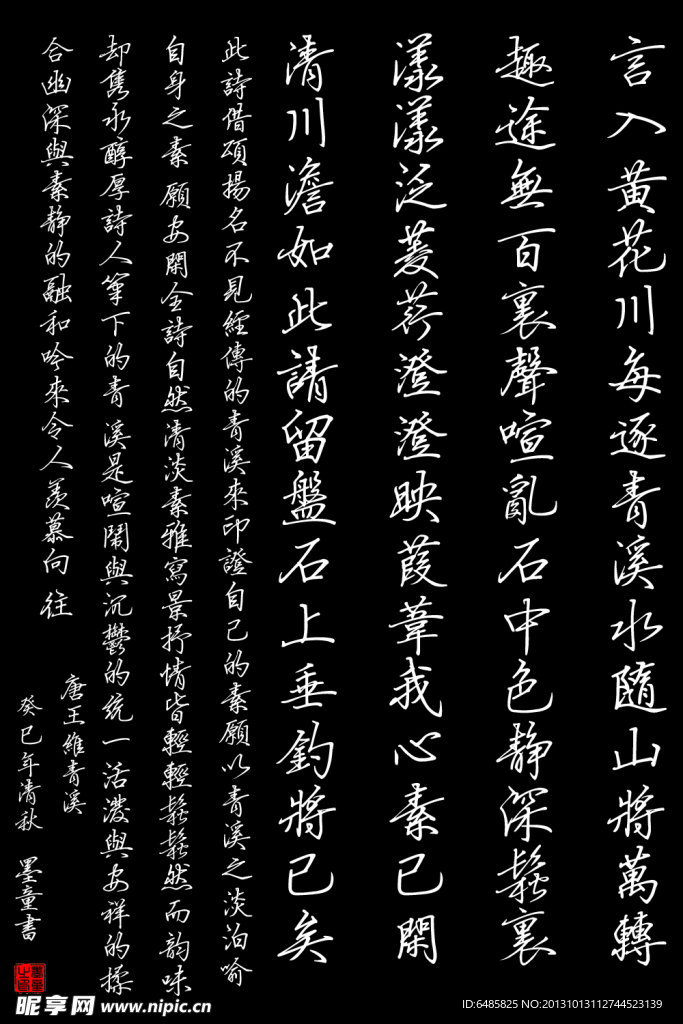 言入黄花川每逐青溪水隨山將萬轉
趣途無百裏聲喧亂石中色静深鬆裏
漾漾泛菱荇澄澄映葭葦我心素已閑
清川澹如此請留盤石上垂釣將已矣
此詩借頌揚名不見經傳的青溪來印證自己的素願以青溪之淡泊喻
自身之素 願安閑全詩自然清淡素雅寫景抒情皆輕輕鬆鬆然而韵味
却雋永醇厚詩人筆下的青溪是喧鬧與沉鬱的统一活潑與安祥的揉
合幽深與素静的融和吟來令人羡慕向往
唐王維青溪
癸巳年清秋 墨童書
昵享网 www.nipic.cn
ID:6485825 NO:20131013112744523139